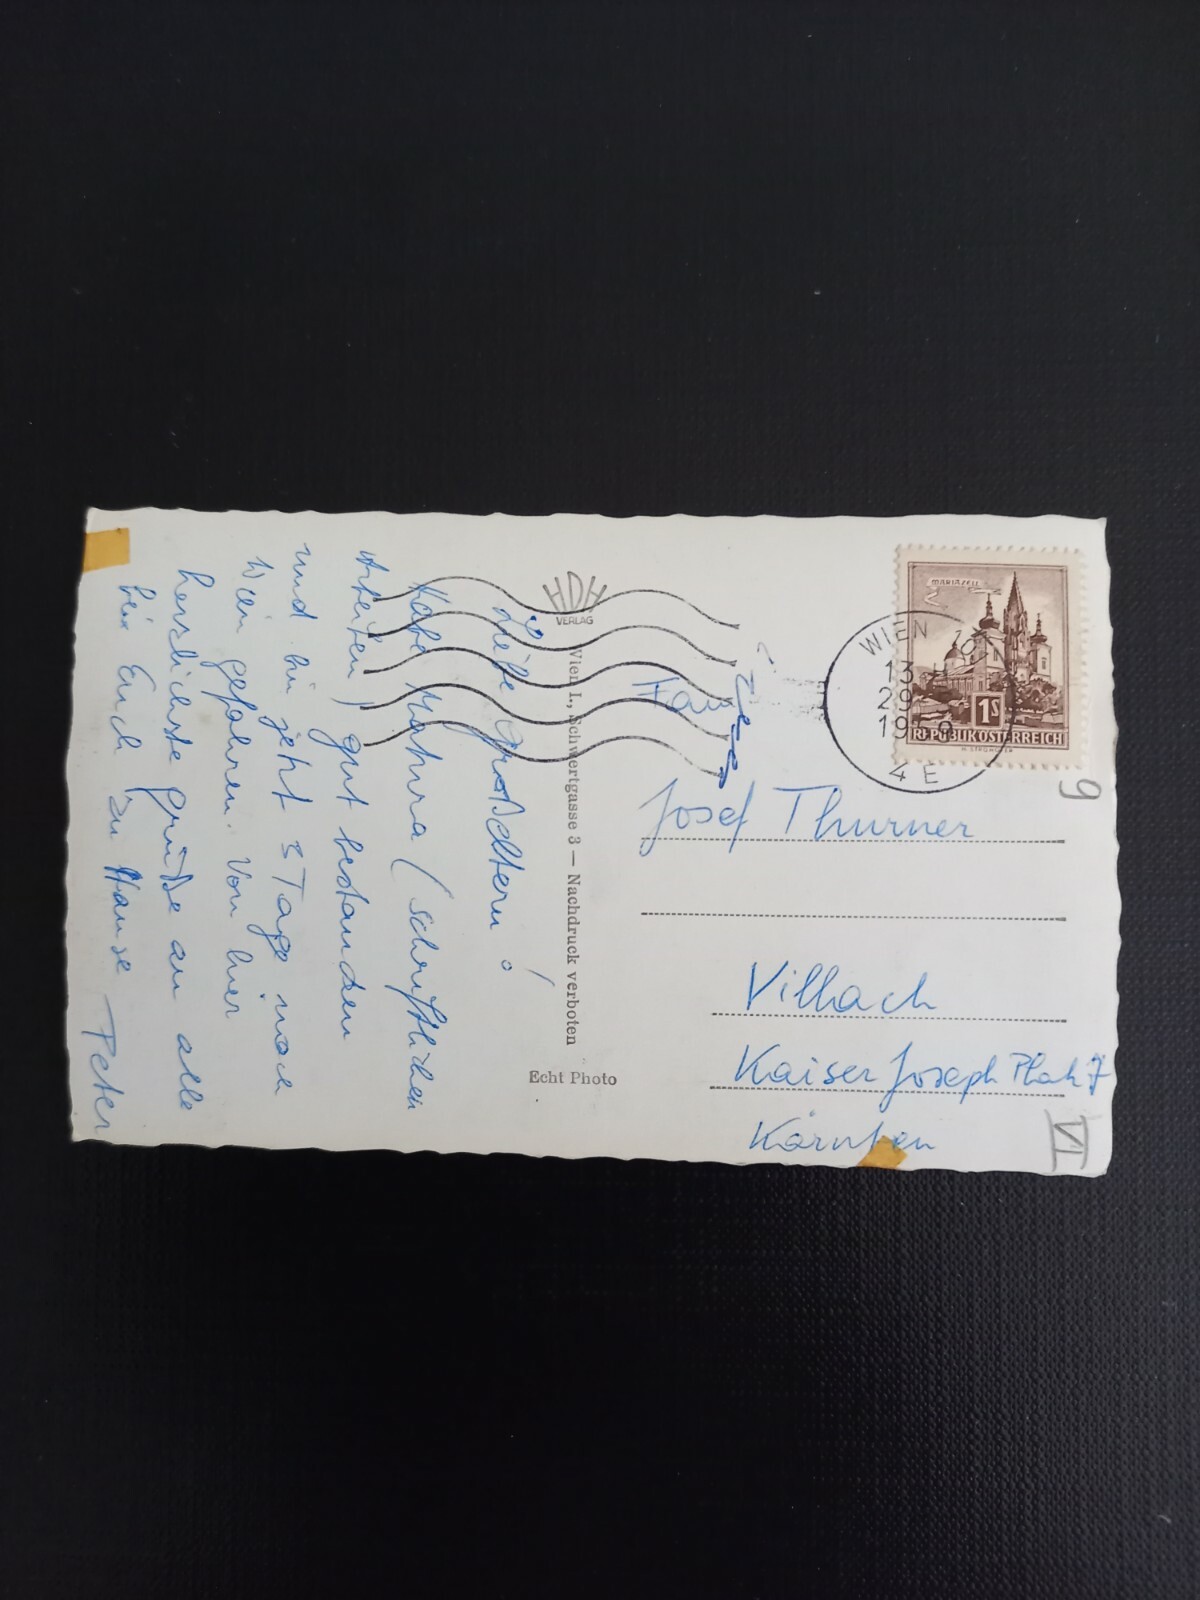 Liebe Großeltern!
Habe Matura (schriftlichen
Arbeiten) gut bestanden
und bin jetzt 3 Tage nach
Wien gefahren. Von hier
herzlichste Grüße an alle
bei Euch zu Hause
Peter
HDH
VERLAG
Wien I., Schwertgasse 3 — Nachdruck verboten
Echt Photo
MARIAZELL
1S
REPUBLIK ÖSTERREICH
WIEN
13
4 E
Josef Thurner
Villach
Kaiser Joseph Platz 7
Kärnten
9
VI